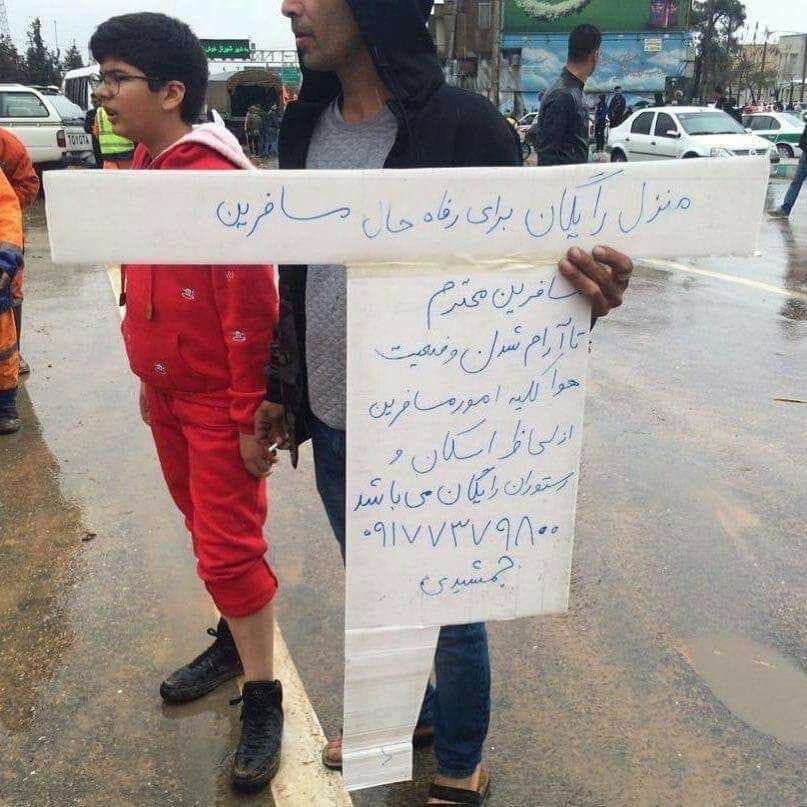 منزل رایگان برای رفاه حال مسافرین
مسافرین محترم
تا آرام شدن وضعیت
هوا کلیه امور مسافرین
از لحاظ اسکان و
رستوران رایگان می باشد
۰۹۱۷۷۳۷۹۸۰۰
جمشیدی
TOYOTA